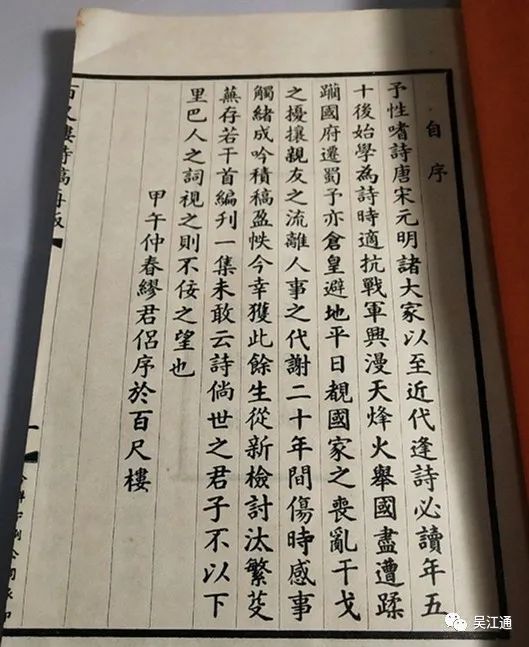 自序
予性嗜詩唐宋元明諸大家以至近代逢詩必讀年五
十後始學為詩時適抗戰軍興漫天烽火舉國盡遭蹂
躪國府遷蜀予亦倉皇避地平日覩國家之喪亂干戈
之擾攘親友之流離人事之代謝二十年間傷時感事
觸緒成吟積稿盈帙今幸獲此餘生從新檢討汰繁芟
蕪存若干首編刊一集未敢云詩倘世之君子不以下
里巴人之詞視之則不佞之望也
甲午仲春繆君侶序於百尺樓
百尺樓詩稿再版
一
吴江通